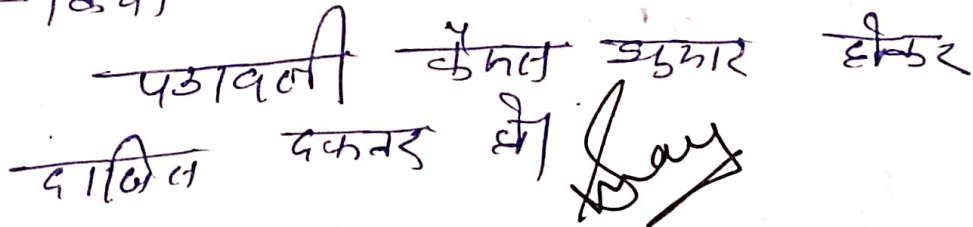 किया
पत्रावली फैसल शुमार होकर
दाखिल दफ्तर हो।